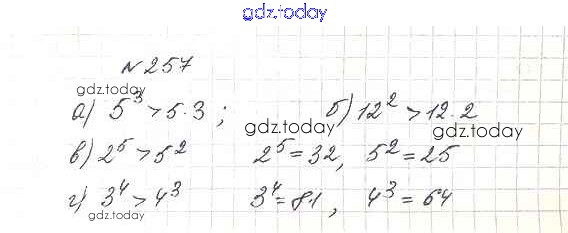 gdz.today
№257
gdz.today
а) 5³ > 5·3 ; б) 12² > 12·2
gdz.today gdz.today
в) 2⁵ > 5² 2⁵ = 32, 5² = 25
г) 3⁴ > 4³ 3⁴ = 81, 4³ = 64
gdz.today